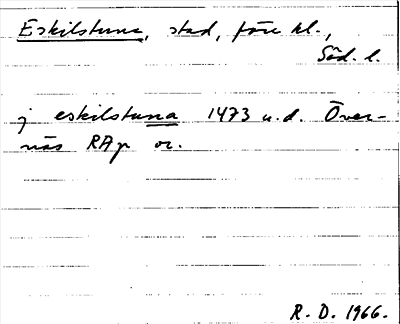 Eskilstuna, stad, före kl.,
Söd. l.
j eskilstuna 1473 u.d. Över-
näs RAp or.
R. D. 1966.